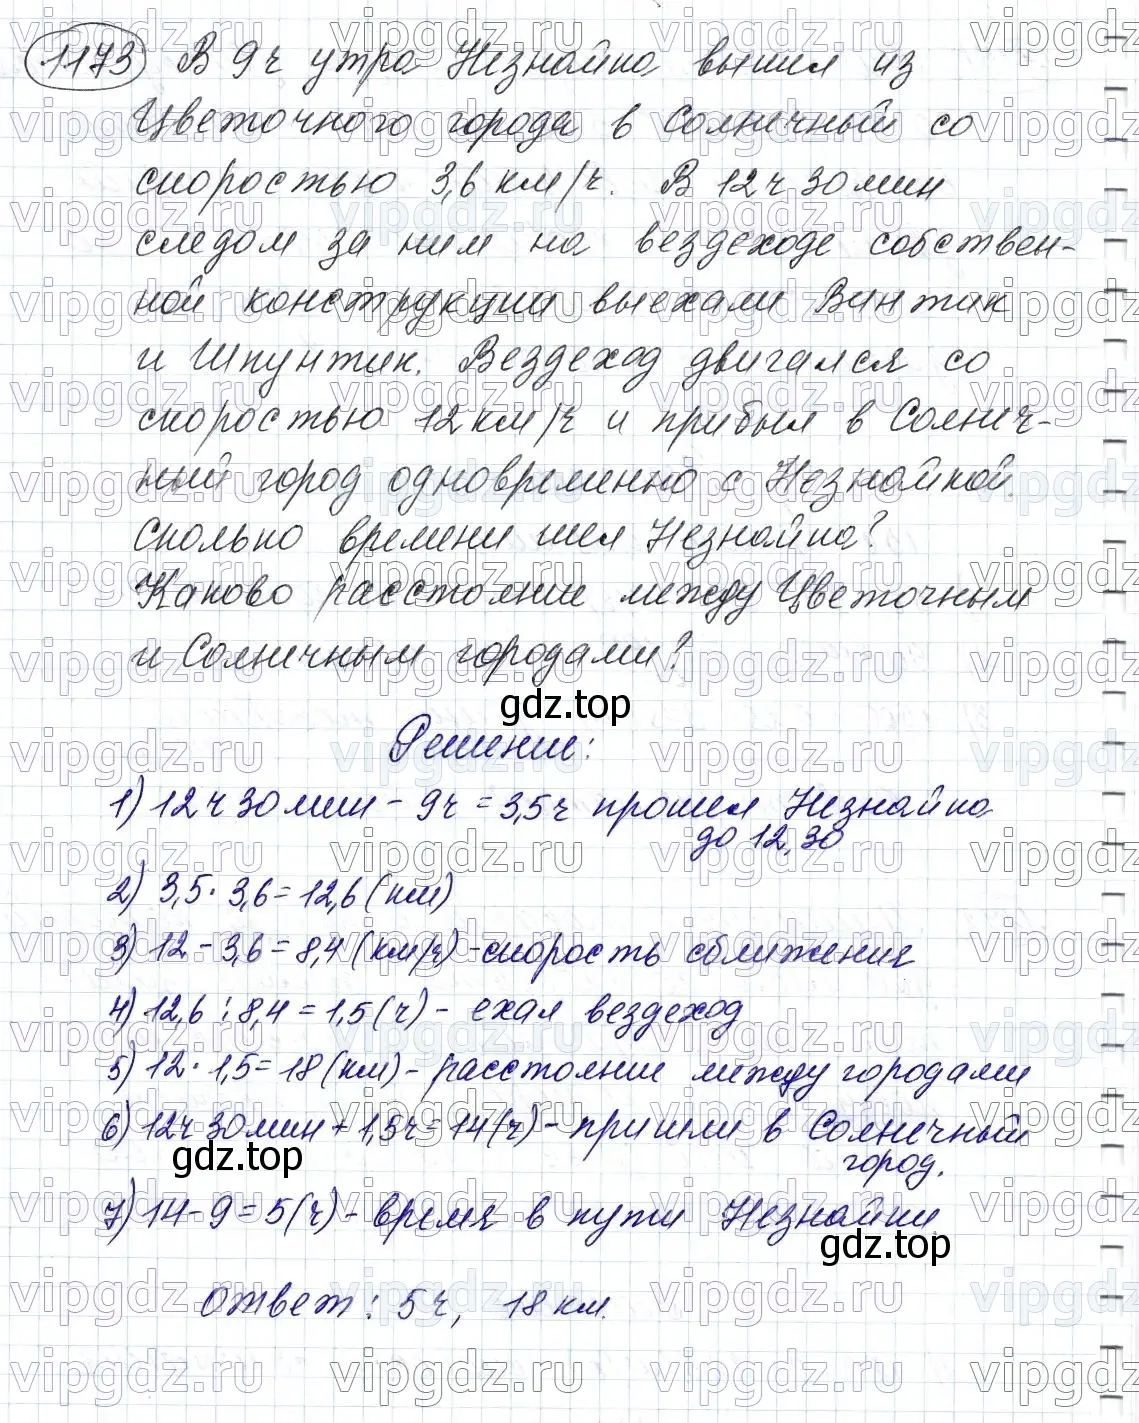 1173 В 9ч утра Незнайка вышел из
Цветочного города в Солнечный со
скоростью 3,6 км/ч. В 12ч 30мин
следом за ним на вездеходе собствен-
ной конструкции выехали Винтик
и Шпунтик. Вездеход двигался со
скоростью 12км/ч и прибыл в Солнеч-
ный город одновременно с Незнайкой.
Сколько времени шел Незнайка?
Каково расстояние между Цветочным
и Солнечным городами?
gdz.top
Решение:
1) 12ч 30мин - 9ч = 3,5ч прошел Незнайка
до 12,30
2) 3,5 · 3,6 = 12,6 (км)
3) 12 - 3,6 = 8,4 (км/ч) - скорость сближения
4) 12,6 : 8,4 = 1,5 (ч) - ехал вездеход
5) 12 · 1,5 = 18 (км) - расстояние между городами
6) 12ч 30мин + 1,5ч = 14(ч) - пришли в Солнечный
город.
gdz.top
7) 14 - 9 = 5 (ч) - время в пути Незнайки
gdz.top
Ответ: 5ч, 18 км.
vipgdz.ru